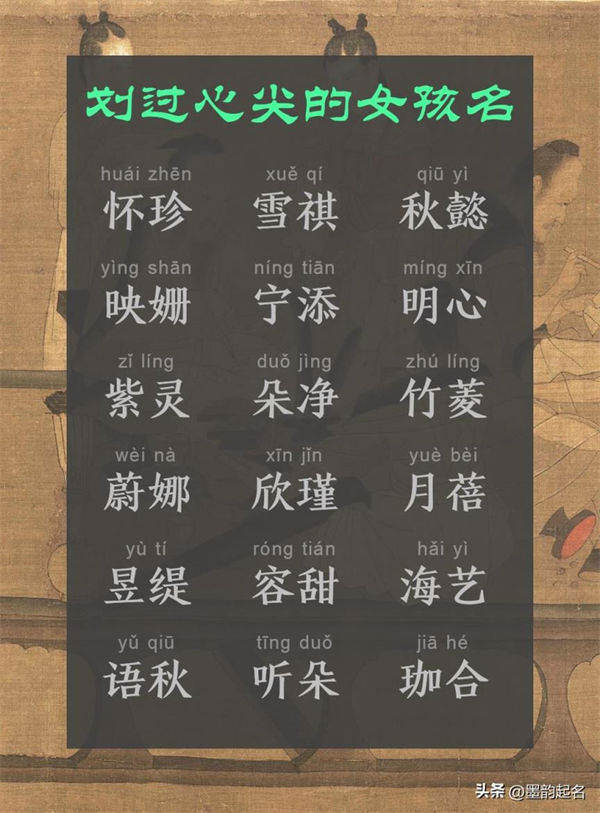 划过心尖的女孩名
huái zhēn xuě qí qiū yì
怀珍 雪祺 秋懿
yìng shān níng tiān míng xīn
映姗 宁添 明心
zǐ líng duǒ jìng zhú líng
紫灵 朵净 竹菱
wèi nà xīn jǐn yuè bèi
蔚娜 欣瑾 月蓓
yù tí róng tián hǎi yì
昱缇 容甜 海艺
yǔ qiū tīng duǒ jiā hé
语秋 听朵 珈合
头条 @墨韵起名